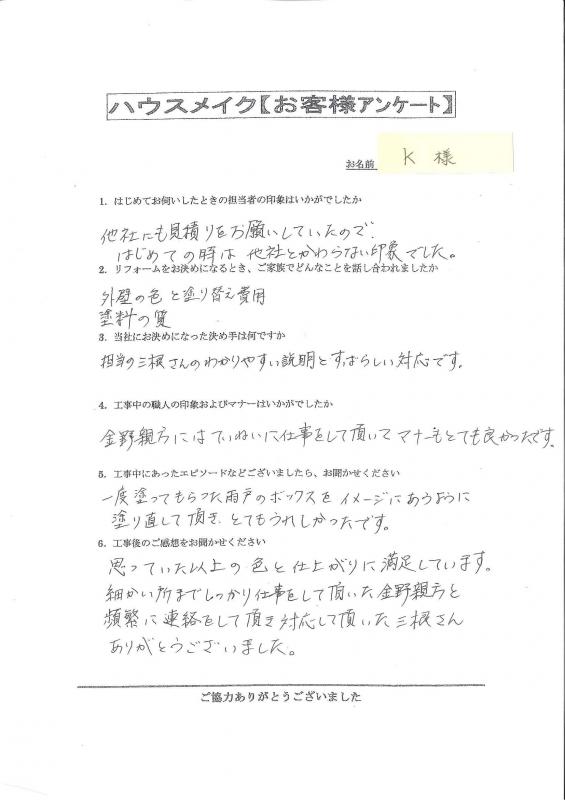 ハウスメイク【お客様アンケート】
お名前 K 様
1. はじめてお伺いしたときの担当者の印象はいかがでしたか
他社にも見積りをお願いしていたので
はじめての時は 他社とかわらない印象でした。
2. リフォームをお決めになるとき、ご家族でどんなことを話し合われましたか
外壁の色 と塗り替え費用
塗料の質
3. 当社にお決めになった決め手は何ですか
担当の三根さんのわかりやすい説明とすばらしい対応です。
4. 工事中の職人の印象およびマナーはいかがでしたか
金野親方にはていねいに仕事をして頂いて マナーもとても良かったです。
5. 工事中にあったエピソードなどございましたら、お聞かせください
一度塗ってもらった雨戸のボックスを イメージにあうように
塗り直して頂き とてもうれしかったです。
6. 工事後のご感想をお聞かせください
思っていた以上の 色 と 仕上がりに 満足しています。
細かい所までしっかり仕事をして頂いた 金野親方と
頻繁に連絡をして頂き 対応して頂いた 三根さん
ありがとうございました。
ご協力ありがとうございました